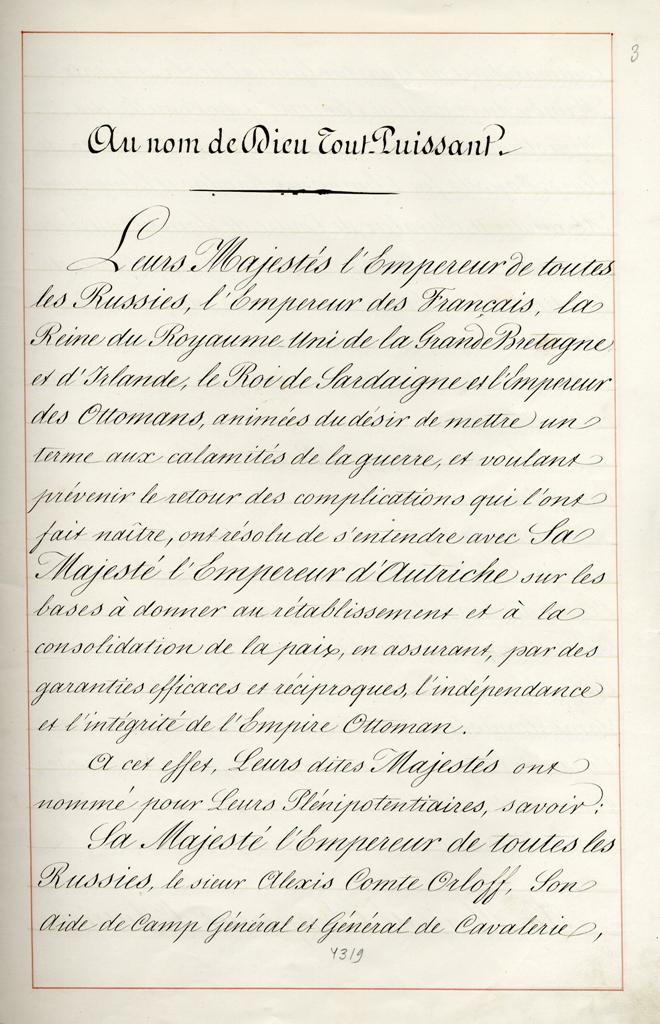 3
Au nom de Dieu Tout-Puissant.
Leurs Majestés l'Empereur de toutes
les Russies, l'Empereur des Français, la
Reine du Royaume Uni de la Grande Bretagne
et d'Irlande, le Roi de Sardaigne et l'Empereur
des Ottomans, animées du désir de mettre un
terme aux calamités de la guerre, et voulant
prévenir le retour des complications qui l'ont
fait naître, ont résolu de s'entendre avec Sa
Majesté l'Empereur d'Autriche sur les
bases à donner au rétablissement et à la
consolidation de la paix, en assurant, par des
garanties efficaces et réciproques, l'indépendance
et l'intégrité de l'Empire Ottoman.
A cet effet, Leurs dites Majestés ont
nommé pour Leurs Plénipotentiaires, savoir:
Sa Majesté l'Empereur de toutes les
Russies, le sieur Alexis Comte Orloff, Son
Aide de Camp Général et Général de Cavalerie,
4319